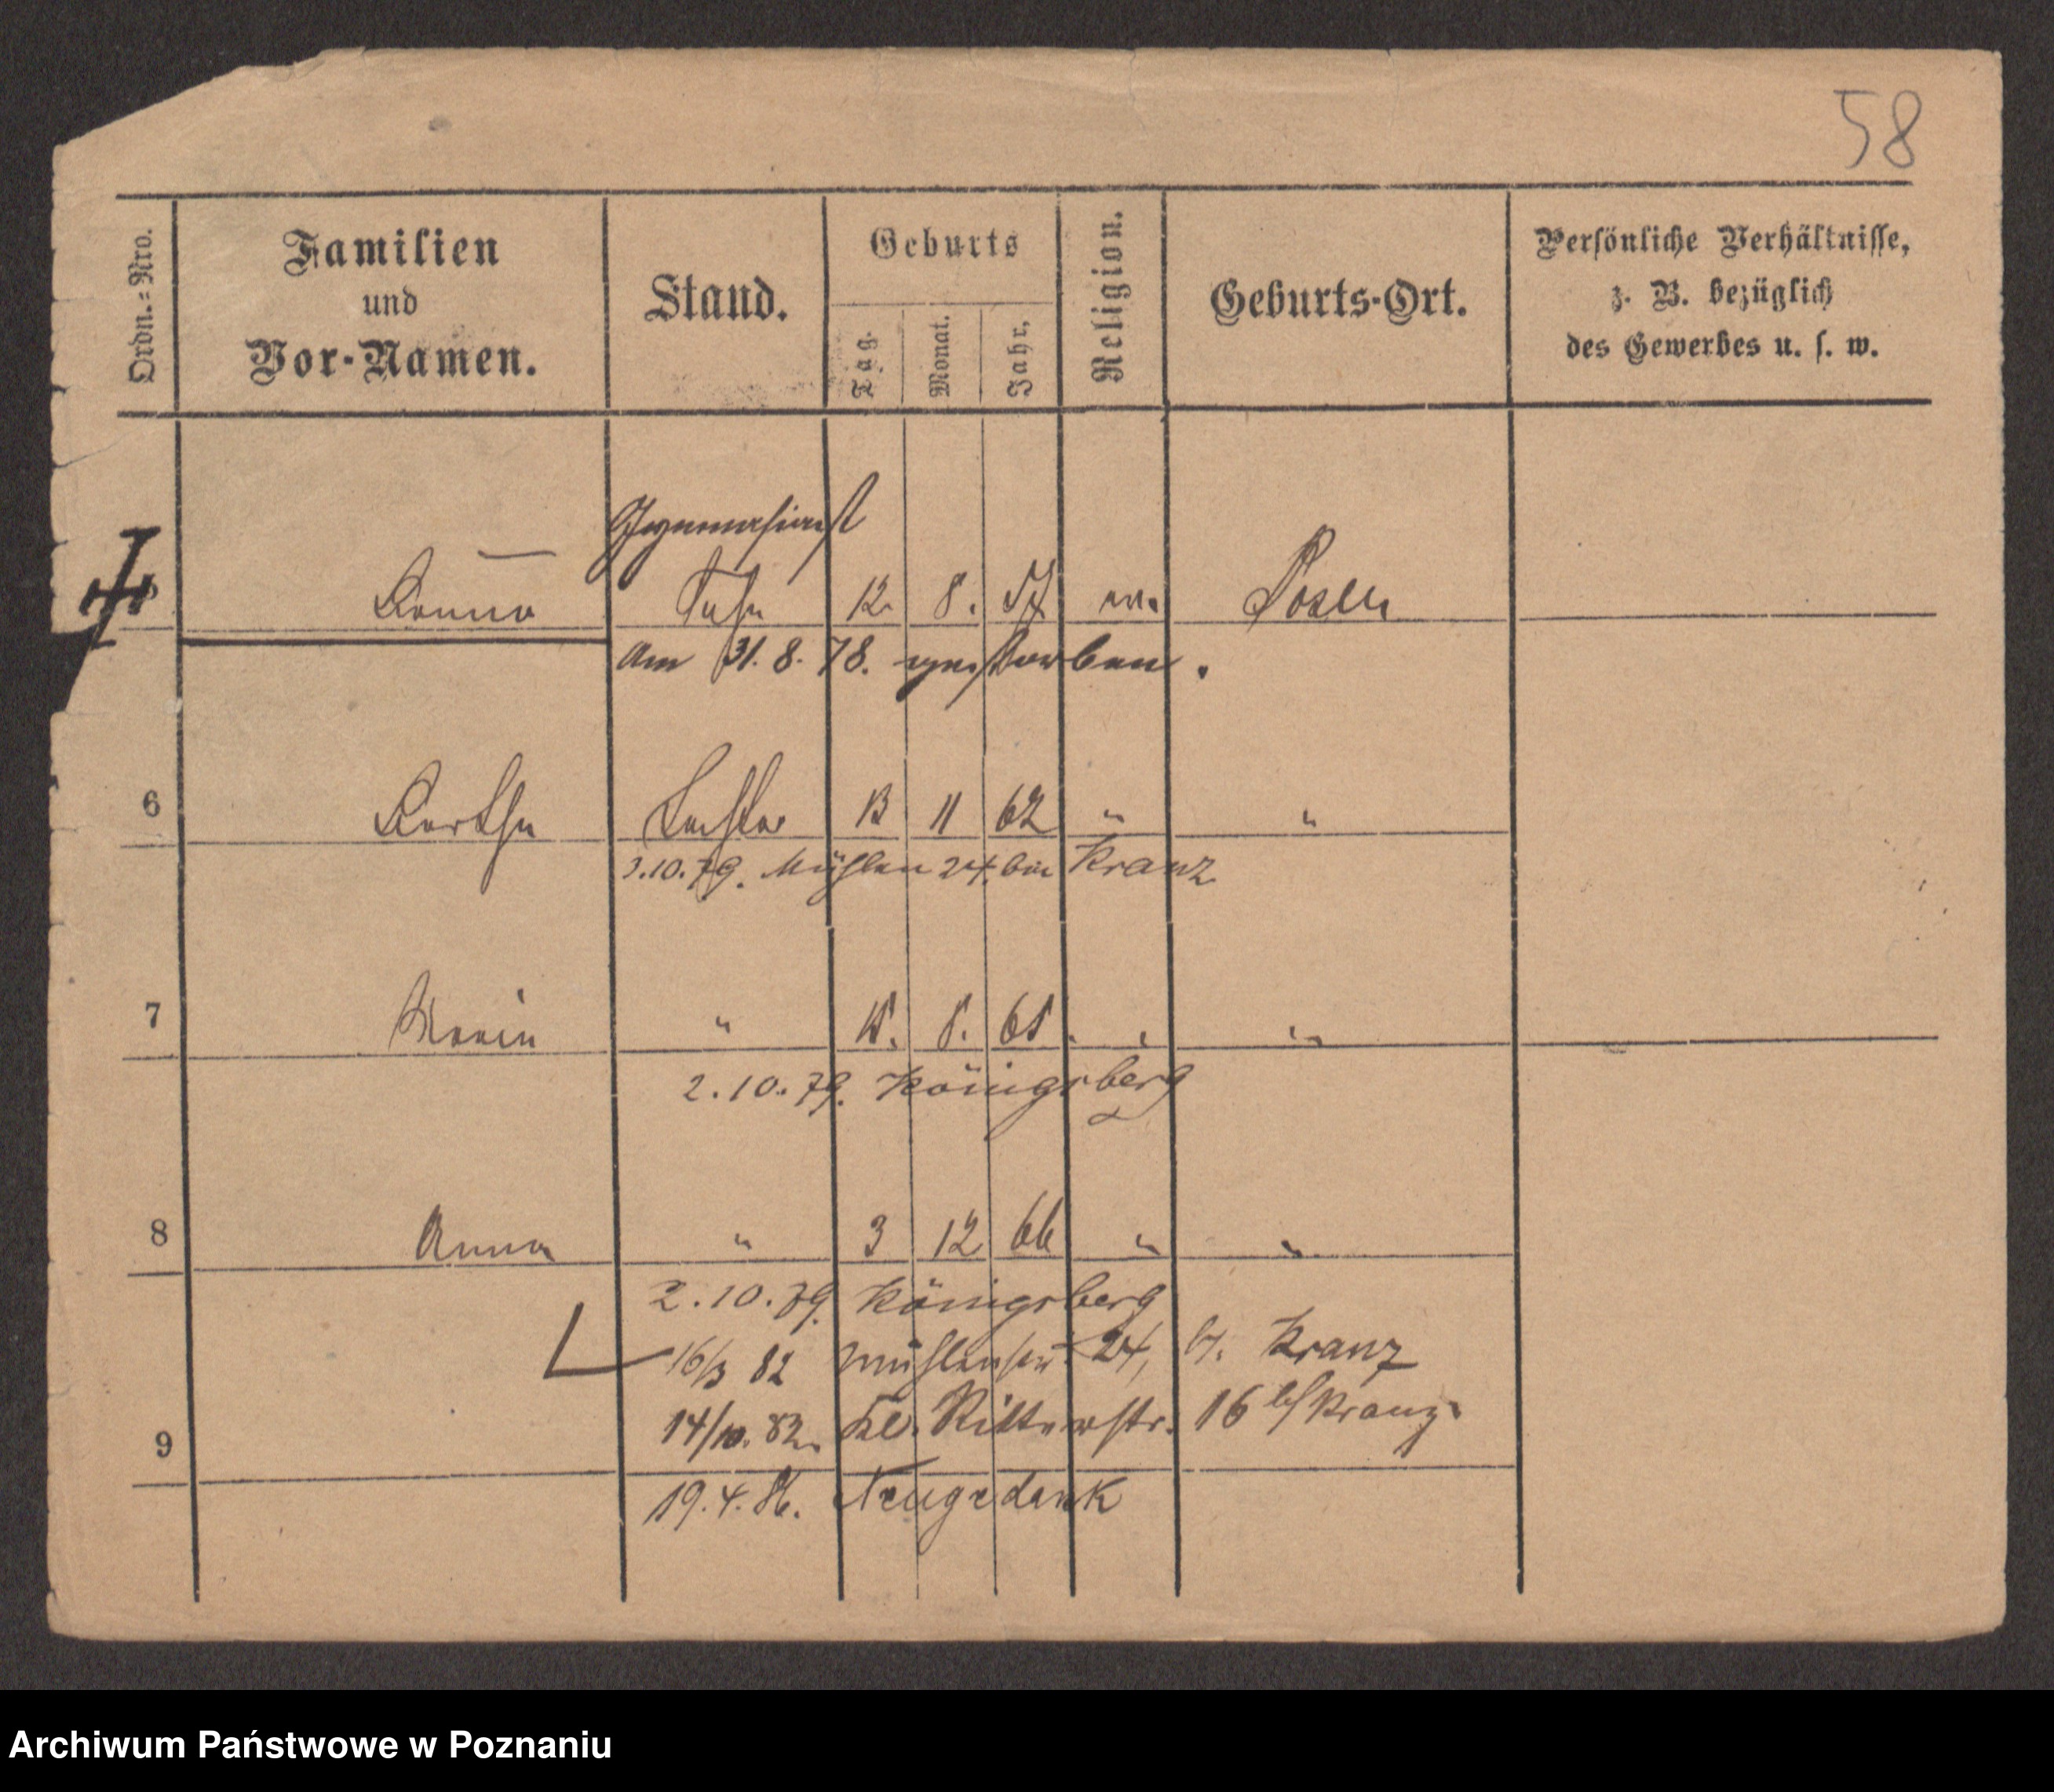 58
Ordn.-Nro.
Familien
und
Vor-Namen.
Stand.
Geburts
Tag.
Monat.
Jahr.
Religion.
Geburts-Ort.
Persönliche Verhältnisse,
z. B. bezüglich
des Gewerbes u. s. w.
Gymnasiast
Sohn 12. 8. 57 ev. Posen
Am 31. 8. 78. gestorben.
6 Bertha Tochter 13 11 62 " "
3.10.79. Mühlen 24. bei Kranz
7 Marie " 15. 8. 65 " "
2.10.79. Königsberg
8 Anna " 3 12 66 " "
2.10.79. Königsberg
16/3 82 Mühlenstr. 24, b. Kranz
14/10. 82. Kl. Ritterstr. 16 b/ Kranz.
9
19.4.86. Neugedank
Archiwum Państwowe w Poznaniu